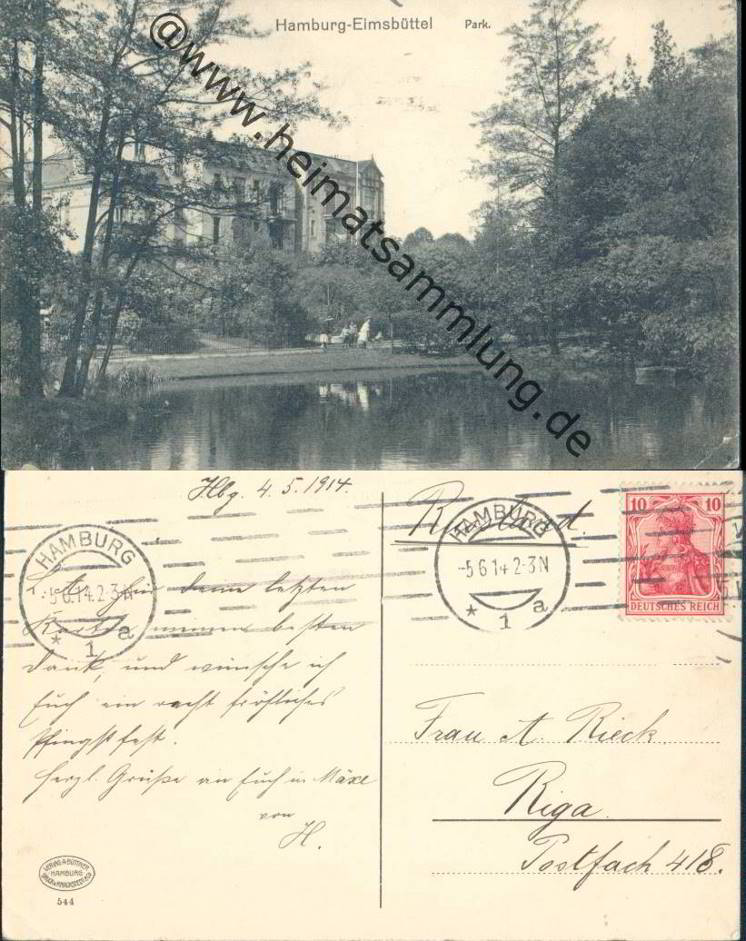 Hamburg-Eimsbüttel Park.
@www.heimatsammlung.de
Hbg. 4. 5. 1914.
Russland.
HAMBURG
-5 6 14 2-3 N
* 1 a
HAMBURG
-5 6 14 2-3 N
* 1 a
10 10
DEUTSCHES REICH
deinen letzten
besten
Dank, und wünsche ich
Euch ein recht fröhliches
Pfingstfest.
Herzl. Grüße an Euch u. Mäxe
von
H.
Frau A. Rieck.
Riga.
Postfach 418.
HAMBURG
544